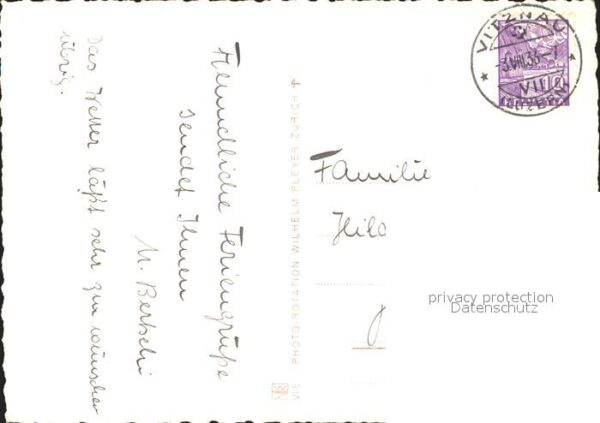 Freundliche Feriengrüße
sendet Ihnen
M. Bertschi
Das Wetter läßt sehr zu wünschen
übrig.
PHOTO-ROTATION WILHELM PLEYER ZÜRICH
Familie
VITZNAU
VIII
(LUZERN)
privacy protection
Datenschutz